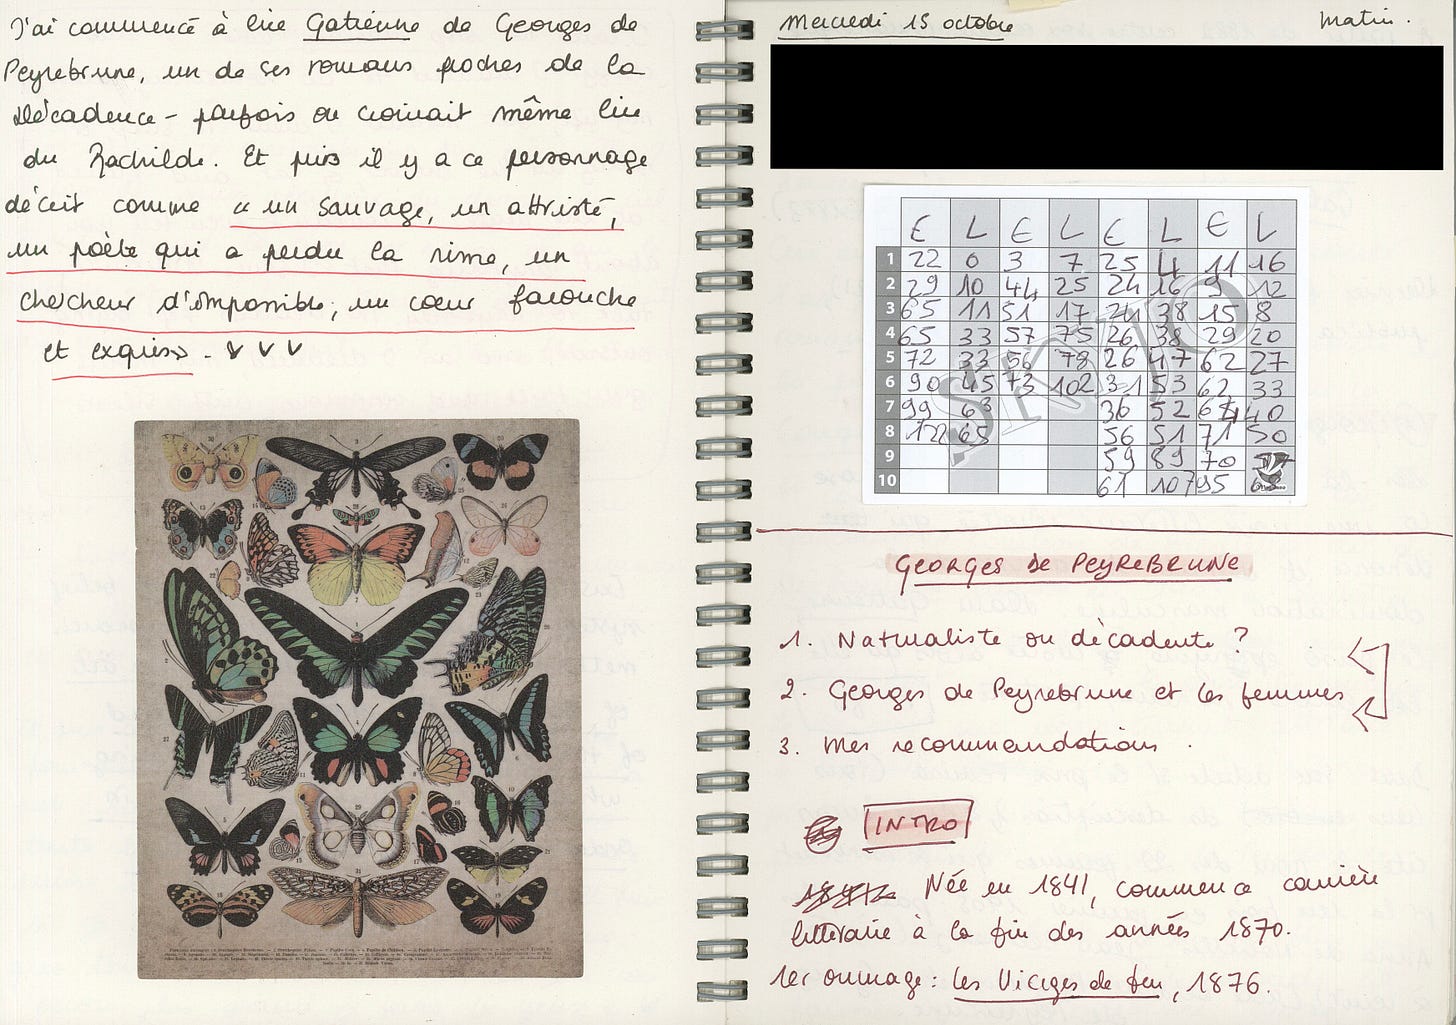 J'ai commencé à lire Gatienne de Georges de
Peyrebrune, un de ses romans proches de la
Décadence - parfois on croirait même lire
du Rachilde. Et puis il y a ce personnage
décrit comme « un sauvage, un attristé,
un poète qui a perdu la rime, un
chercheur d'impossible, un cœur farouche
et exquis » .
Mercredi 15 octobre
Matin.
E L E L E L E L
1 22 0 3 7 25 4 11 16
2 29 10 44 25 24 16 9 12
3 65 11 51 17 24 38 15 8
4 65 33 57 75 26 38 29 20
5 72 33 56 78 26 47 62 27
6 90 45 73 102 31 53 62 33
7 99 68 36 52 40
8 122 65 56 51 71 50
9 59 89 70
10 61 107 95
GEORGES DE PEYREBRUNE
1. Naturaliste ou décadente ?
2. Georges de Peyrebrune et les femmes
3. Mes recommandations.
INTRO
Née en 1841, commence carrière
littéraire à la fin des années 1870.
1er ouvrage : Les Vierges de feu, 1876.